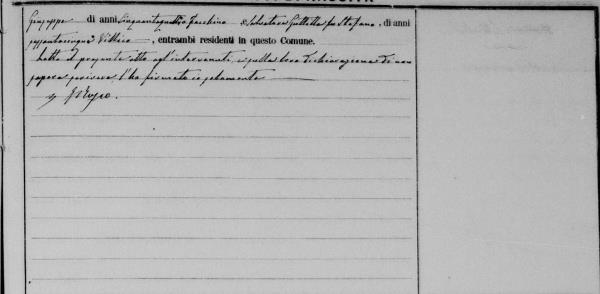 Giuseppe di anni cinquantaquattro facchino e Salvatore fu Stefano, di anni
sessantacinque, entrambi residenti in questo Comune.
Letto il presente atto agl'intervenuti, e sulla loro dichiarazione di non
sapere scrivere l'ho firmato io solamente